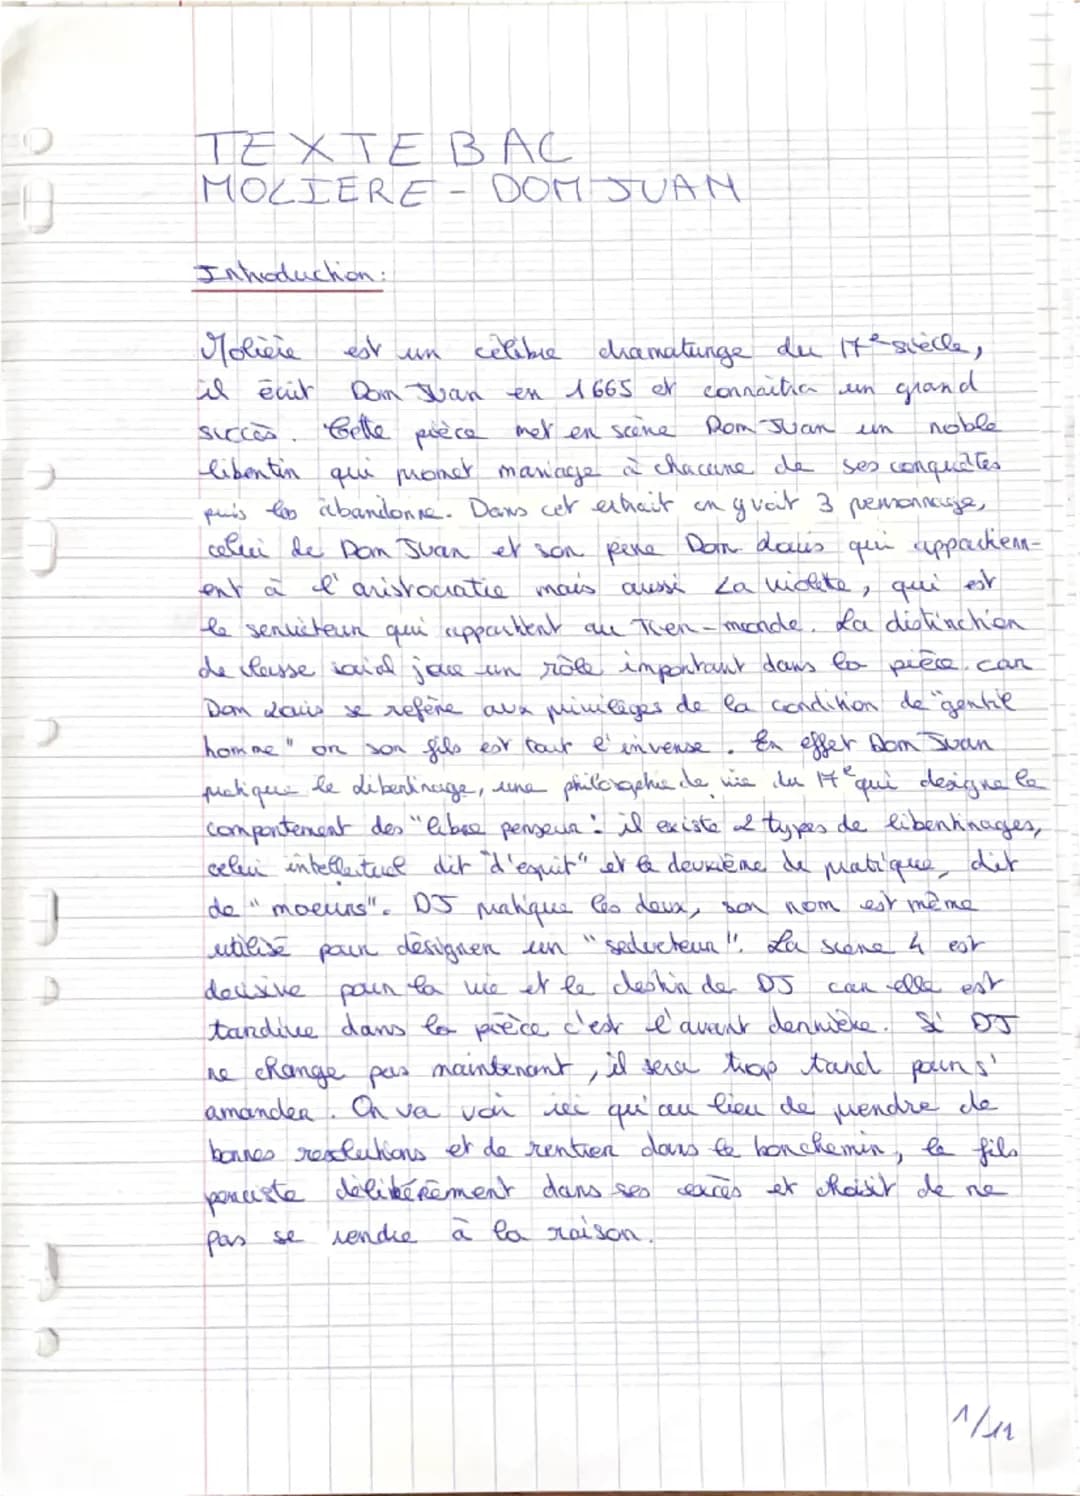 TEXTE BAC
MOLIERE - DOM JUAN
Introduction :
Molière est un célèbre dramaturge du 17e siècle,
il écrit Dom Juan en 1665 et connaîtra un grand
succès. Cette pièce met en scène Dom Juan un noble
libertin qui promet mariage à chacune de ses conquêtes
puis les abandonne. Dans cet extrait on y voit 3 personnage,
celui de Dom Juan et son père Dom Louis qui appartienn-
ent à l'aristocratie mais aussi La violette, qui est
le serviteur qui appartient au Tier-monde. La distinction
de classe social joue un rôle important dans la pièce car
Dom Louis se refère aux privilèges de la condition de "gentil
homme" or son fils est tout l'inverse. En effet Dom Juan
pratique le libertinage, une philosophie de vie du 17e qui designe le
comportement des "libre penseur": il existe 2 types de libertinages,
celui intellectuel dit "d'esprit" et le deuxième de pratique, dit
de "moeurs". DJ pratique les deux, son nom est même
utilisé pour désigner un "seducteur". La scène 4 est
decisive pour la vie et le destin de DJ car elle est
tardive dans la pièce c'est l'avant dernière. Si DJ
ne change pas maintenant, il sera trop tard pour s'
amander. On va voir ici qu'au lieu de prendre de
bonnes resolutions et de rentrer dans le bon chemin, le fils
persiste délibérément dans ses excès et choisit de ne
pas se rendre à la raison.
1/11